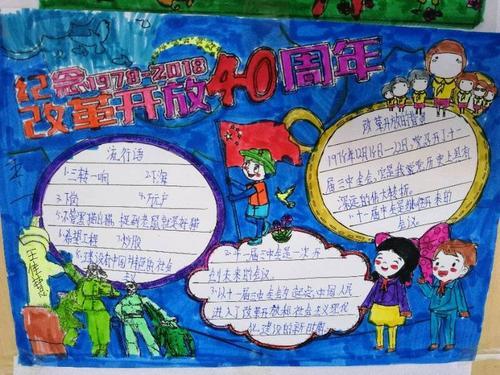 纪念1978-2018
改革开放40周年
流行语
1.二转一响
2.下海
3.下岗
4.万元户
5.不管黑猫白猫 捉到老鼠就是好猫
6.希望工程
7.炒股
8.建设有中国特色的社会
主义
改革开放的背景
1978年12月18日-22日,党召开了十一
届三中全会,它是我党历史上具有
深远的伟大转折。
1.十一届中全是继往开来的
会议
2.十一届三中全会是一次开
创未来的会议
3.以十一届三中全会为起点,中国人民
进入了改革开放和社会主义现代
化建设的新时期